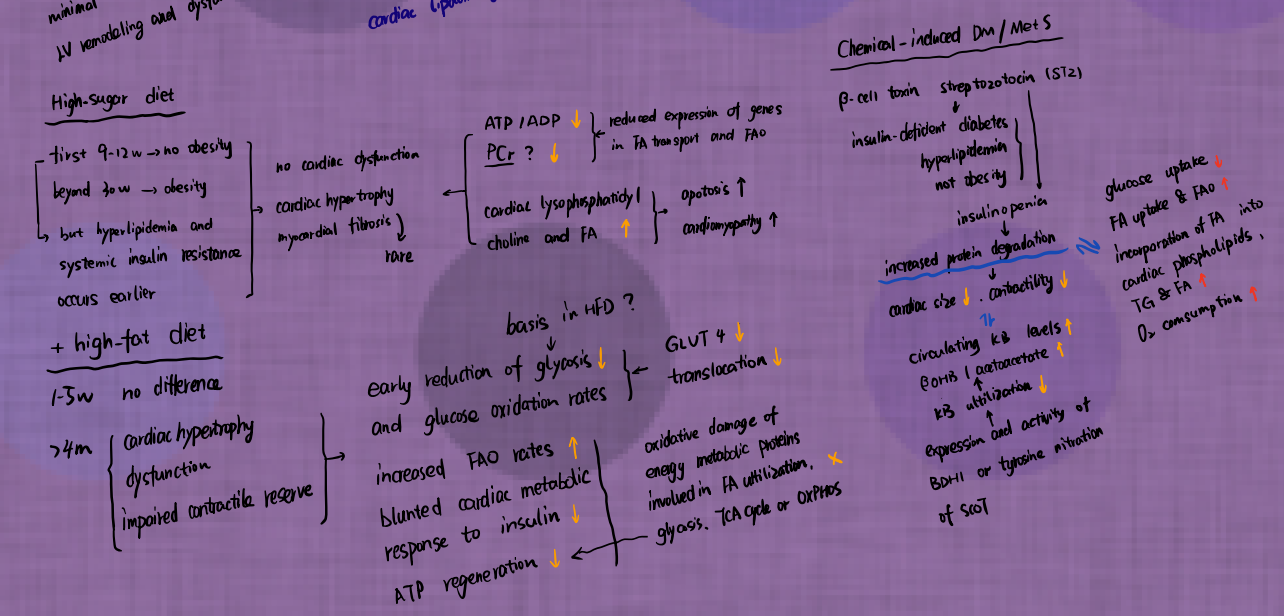 minimal
LV remodeling and
cardiac
High-sugar diet
- first 9-12w → no obesity
beyond 30w → obesity
↳ but hyperlipidemia and
systemic insulin resistance
occurs earlier
no cardiac dysfunction
cardiac hypertrophy
myocardial fibrosis
rare
ATP/ADP ↓
PCr ? ↓
reduced expression of genes
in FA transport and FAO
cardiac lysophosphatidyl
choline and FA ↑
apotosis ↑
cardiomyopathy ↑
+ high-fat diet
1-5w no difference
>4m
cardiac hypertrophy
dysfunction
impaired contractile reserve
basis in HFD ?
↓
early reduction of glycosis ↓
and glucose oxidation rates
GLUT 4 ↓
translocation ↓
increased FAO rates ↑
blunted cardiac metabolic
response to insulin ↓
ATP regeneration ↓
oxidative damage of
energy metabolic proteins
involved in FA utilization, ×
glyosis, TCA cycle or OXPHOS
Chemical-induced DM/MetS
β-cell toxin streptozotocin (STZ)
↓
insulin-deficient diabetes
hyperlipidemin
not obesity
insulinopenia
↓
increased protein degradation
↓
cardiac size ↓. contractility ↓
circulating KB levels ↑
βOHB / acetoacetate ↑
↑
KB utilization ↓
↑
expression and activity of
BDH1 or tyrosine nitration
of SCOT
glucose uptake ↓
FA uptake & FAO ↑
incorporation of FA into
cardiac phospholipids,
TG & FA ↑
O₂ comsumption ↑